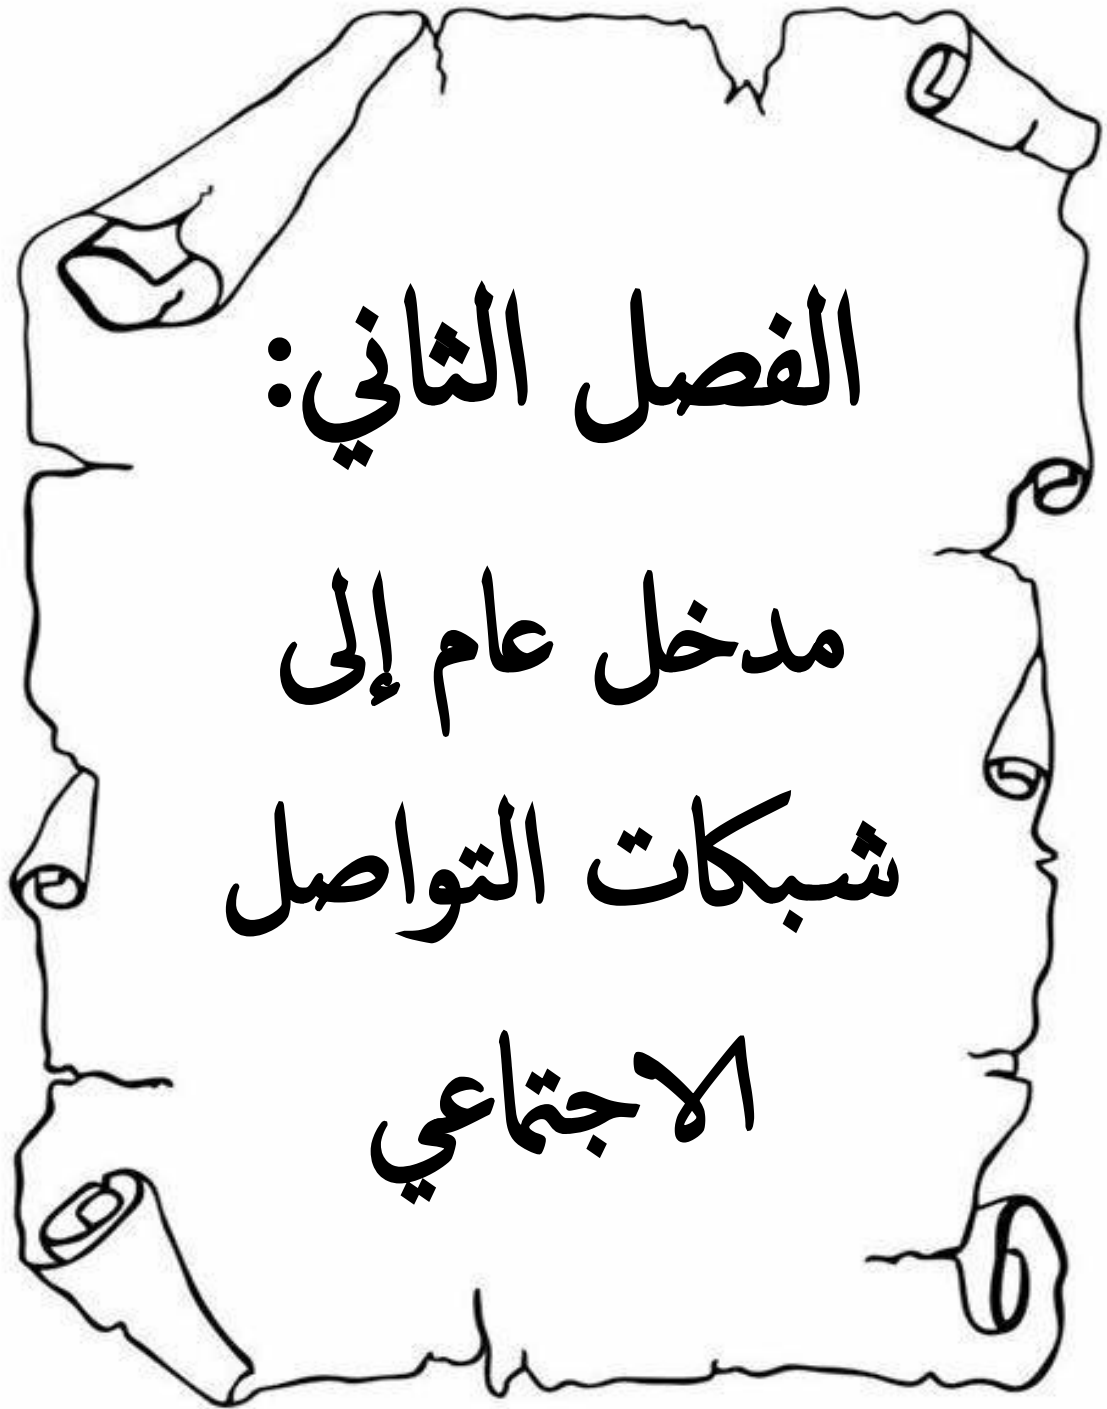 الفصل الثاني:
مدخل عام إلى
شبكات التواصل
الاجتماعي